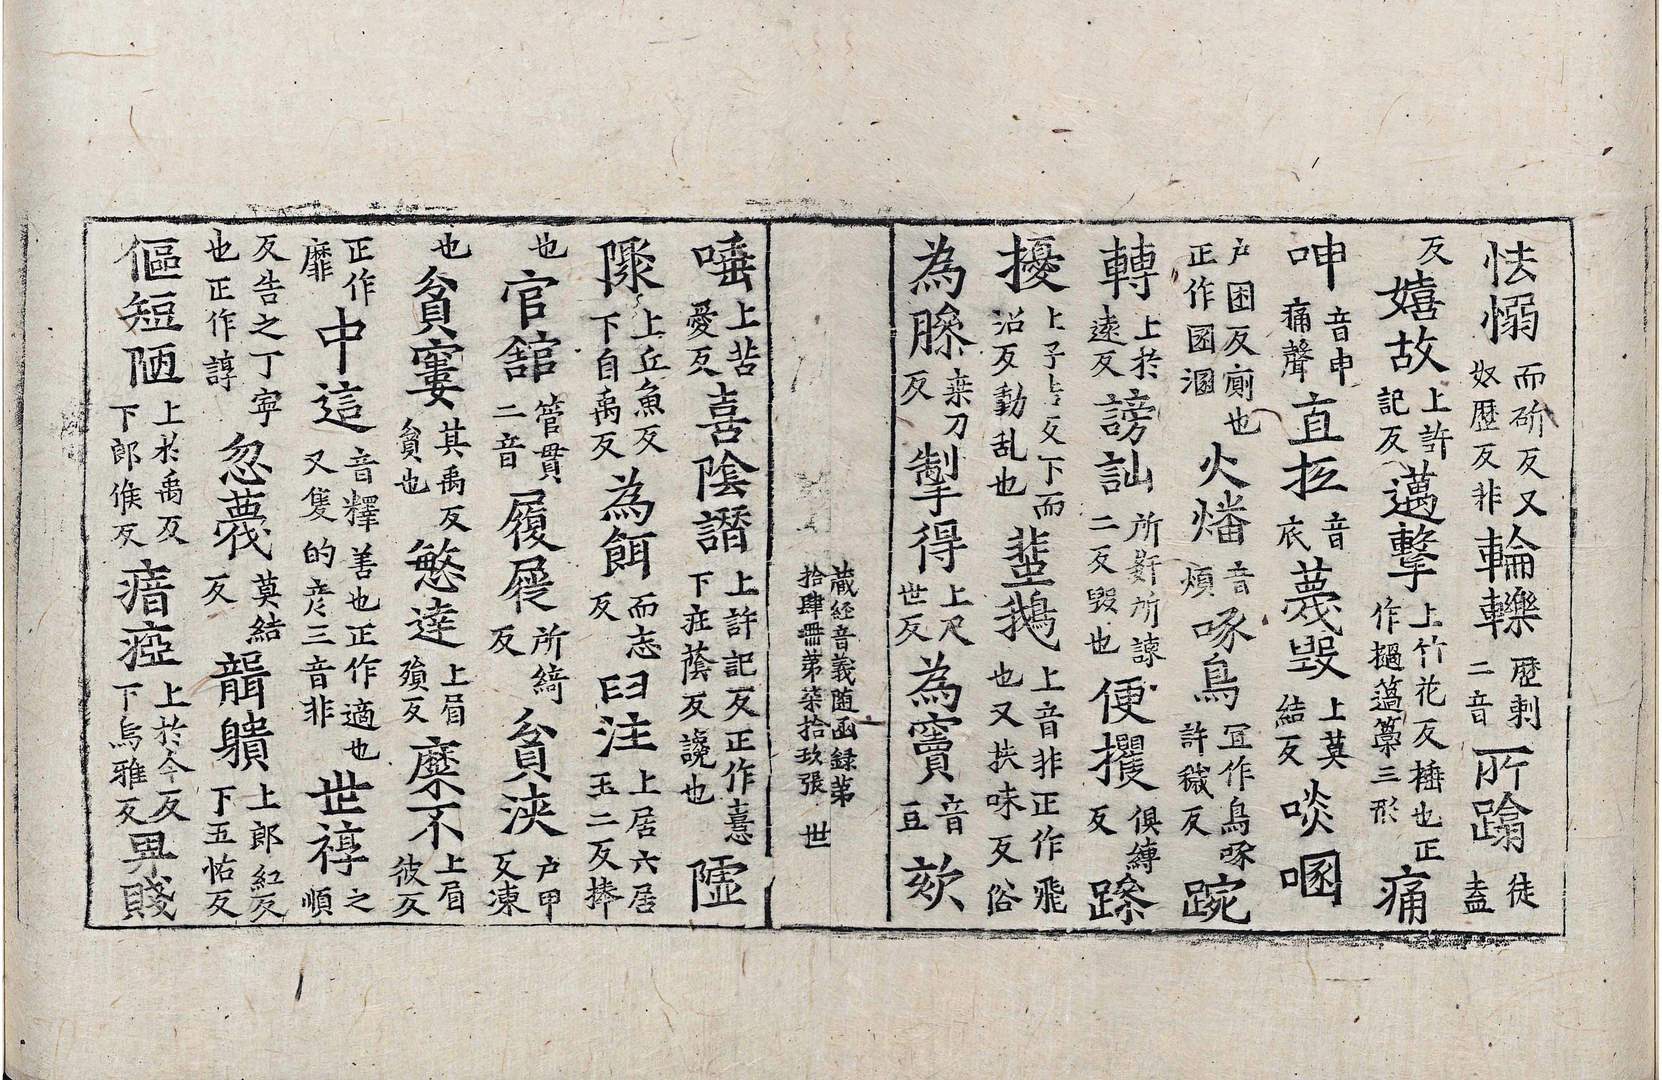 怯愵而斫反又奴歷反非輪轢歷剌二音所踰徒盍
反嬉故上許記反薖撃上竹花反棰也正作撾薖簻三形痛
呻音申痛聲直㧉音衣蔑毀上莫結反啖啯
户困反廁也正作圂溷火燔音煩啄鳥冝作鳥啄許穢反踠
轉上於遠反謗訕所奸所諫二反毀也便攫俱縛反蹂
擾上子六反下而沼反動乱也蜚鵝上音非正作飛也又扶味反俗
為𦟛桒刀反掣得上尺世反為竇音豆欬
藏經音義随函録第拾肆冊第柒拾玖張 世
唾上苦愛反喜陰譖上許記反正作憙下庄蔭反讒也隱
隊上丘魚反下自禹反為餌而志反臼注上居六居玉二反捧
也官舘管貫二音履屣所綺反貧浹户甲反凍
也貧寠其禹反貧也慜達上眉殞反糜不上眉彼反
正作靡中這音釋善也正作適也又隻的彦三音非世䄻之順
反告之丁寧也正作諄忽蔑莫結反聾聵上郎紅反下五恠反
傴短陋上於禹反下郎候反瘖瘂上於今反下烏雅反畀賤